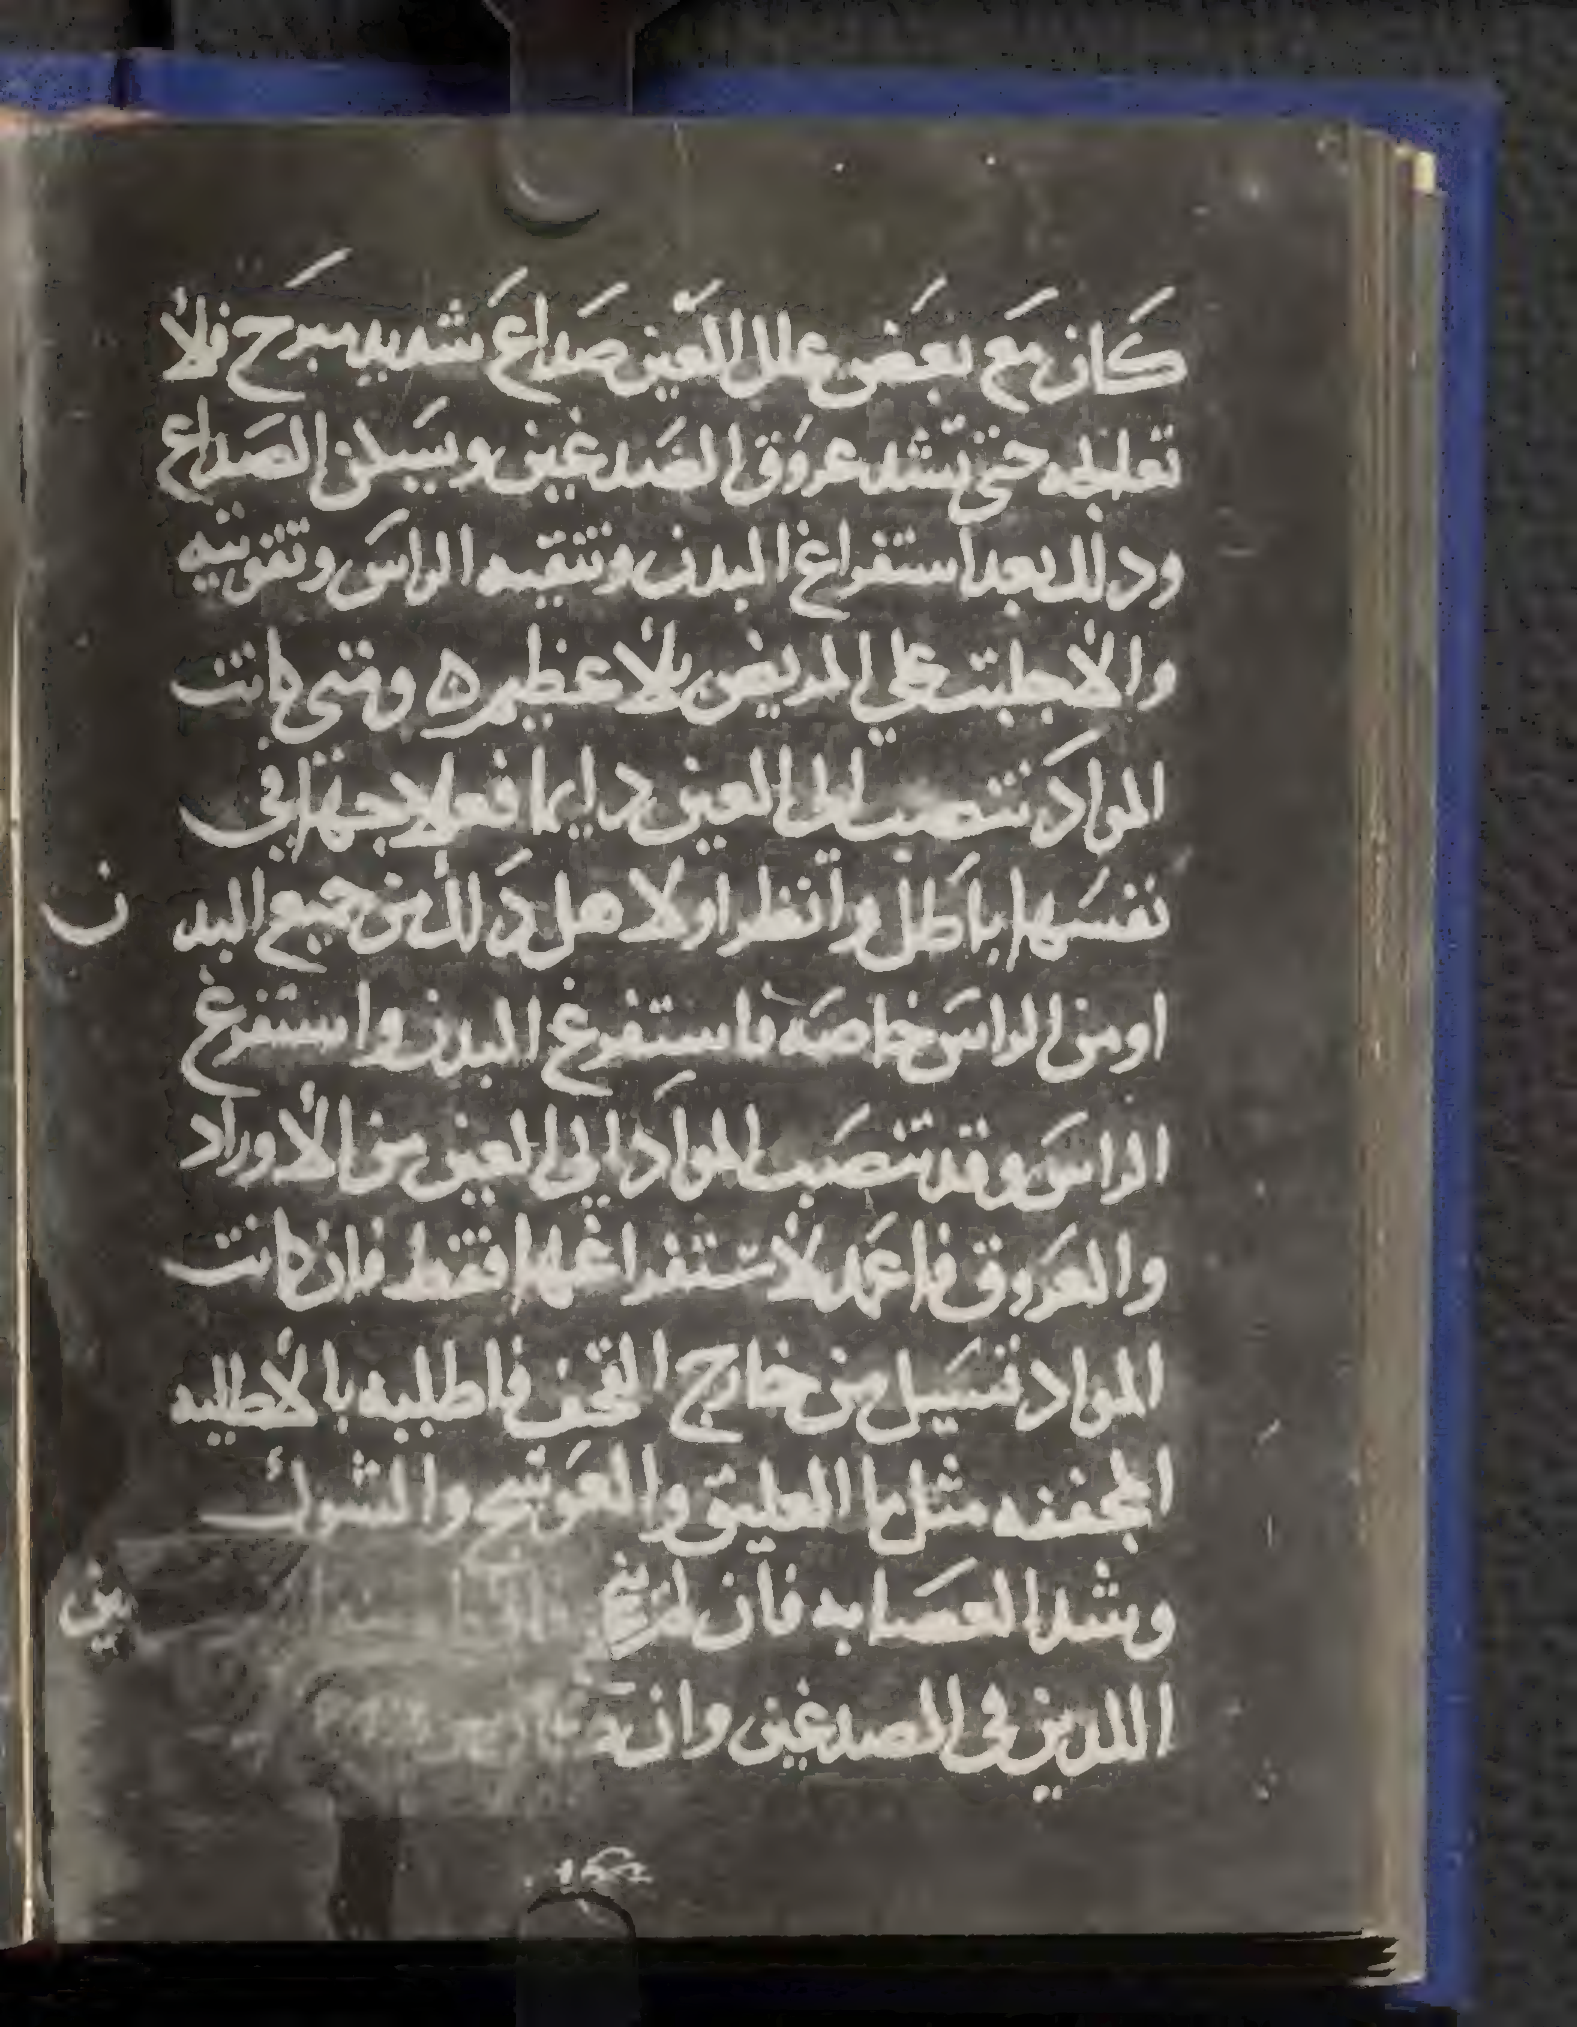 كان مع بعض علل العين صداع شديد مبرح فلا
تعالجه حتى تشد عروق الصدغين ويسكن الصداع
ودلك بعد استفراغ البدن وتنقيه الراس وتقويته
والا جلبت على المريض بلا عظيم ه ومتى كانت
المواد تنصب الى العين دايما فعلاجها في
نفسها باطل وانظر اولا هل دلك من جميع البدن
او من الراس خاصه فاستفرغ البدن واستفرغ
الراس وقد تنصب المواد الى العين من الاوراد
والعروق فاعمد لاستفراغها فقط فان كانت
المواد تسيل من خارج القحف فاطلبه بالاطليه
المجففه مثل ما العليق والعوسج والشوك
وشد العصابه فان لم ين
اللدين في الصدغين وان